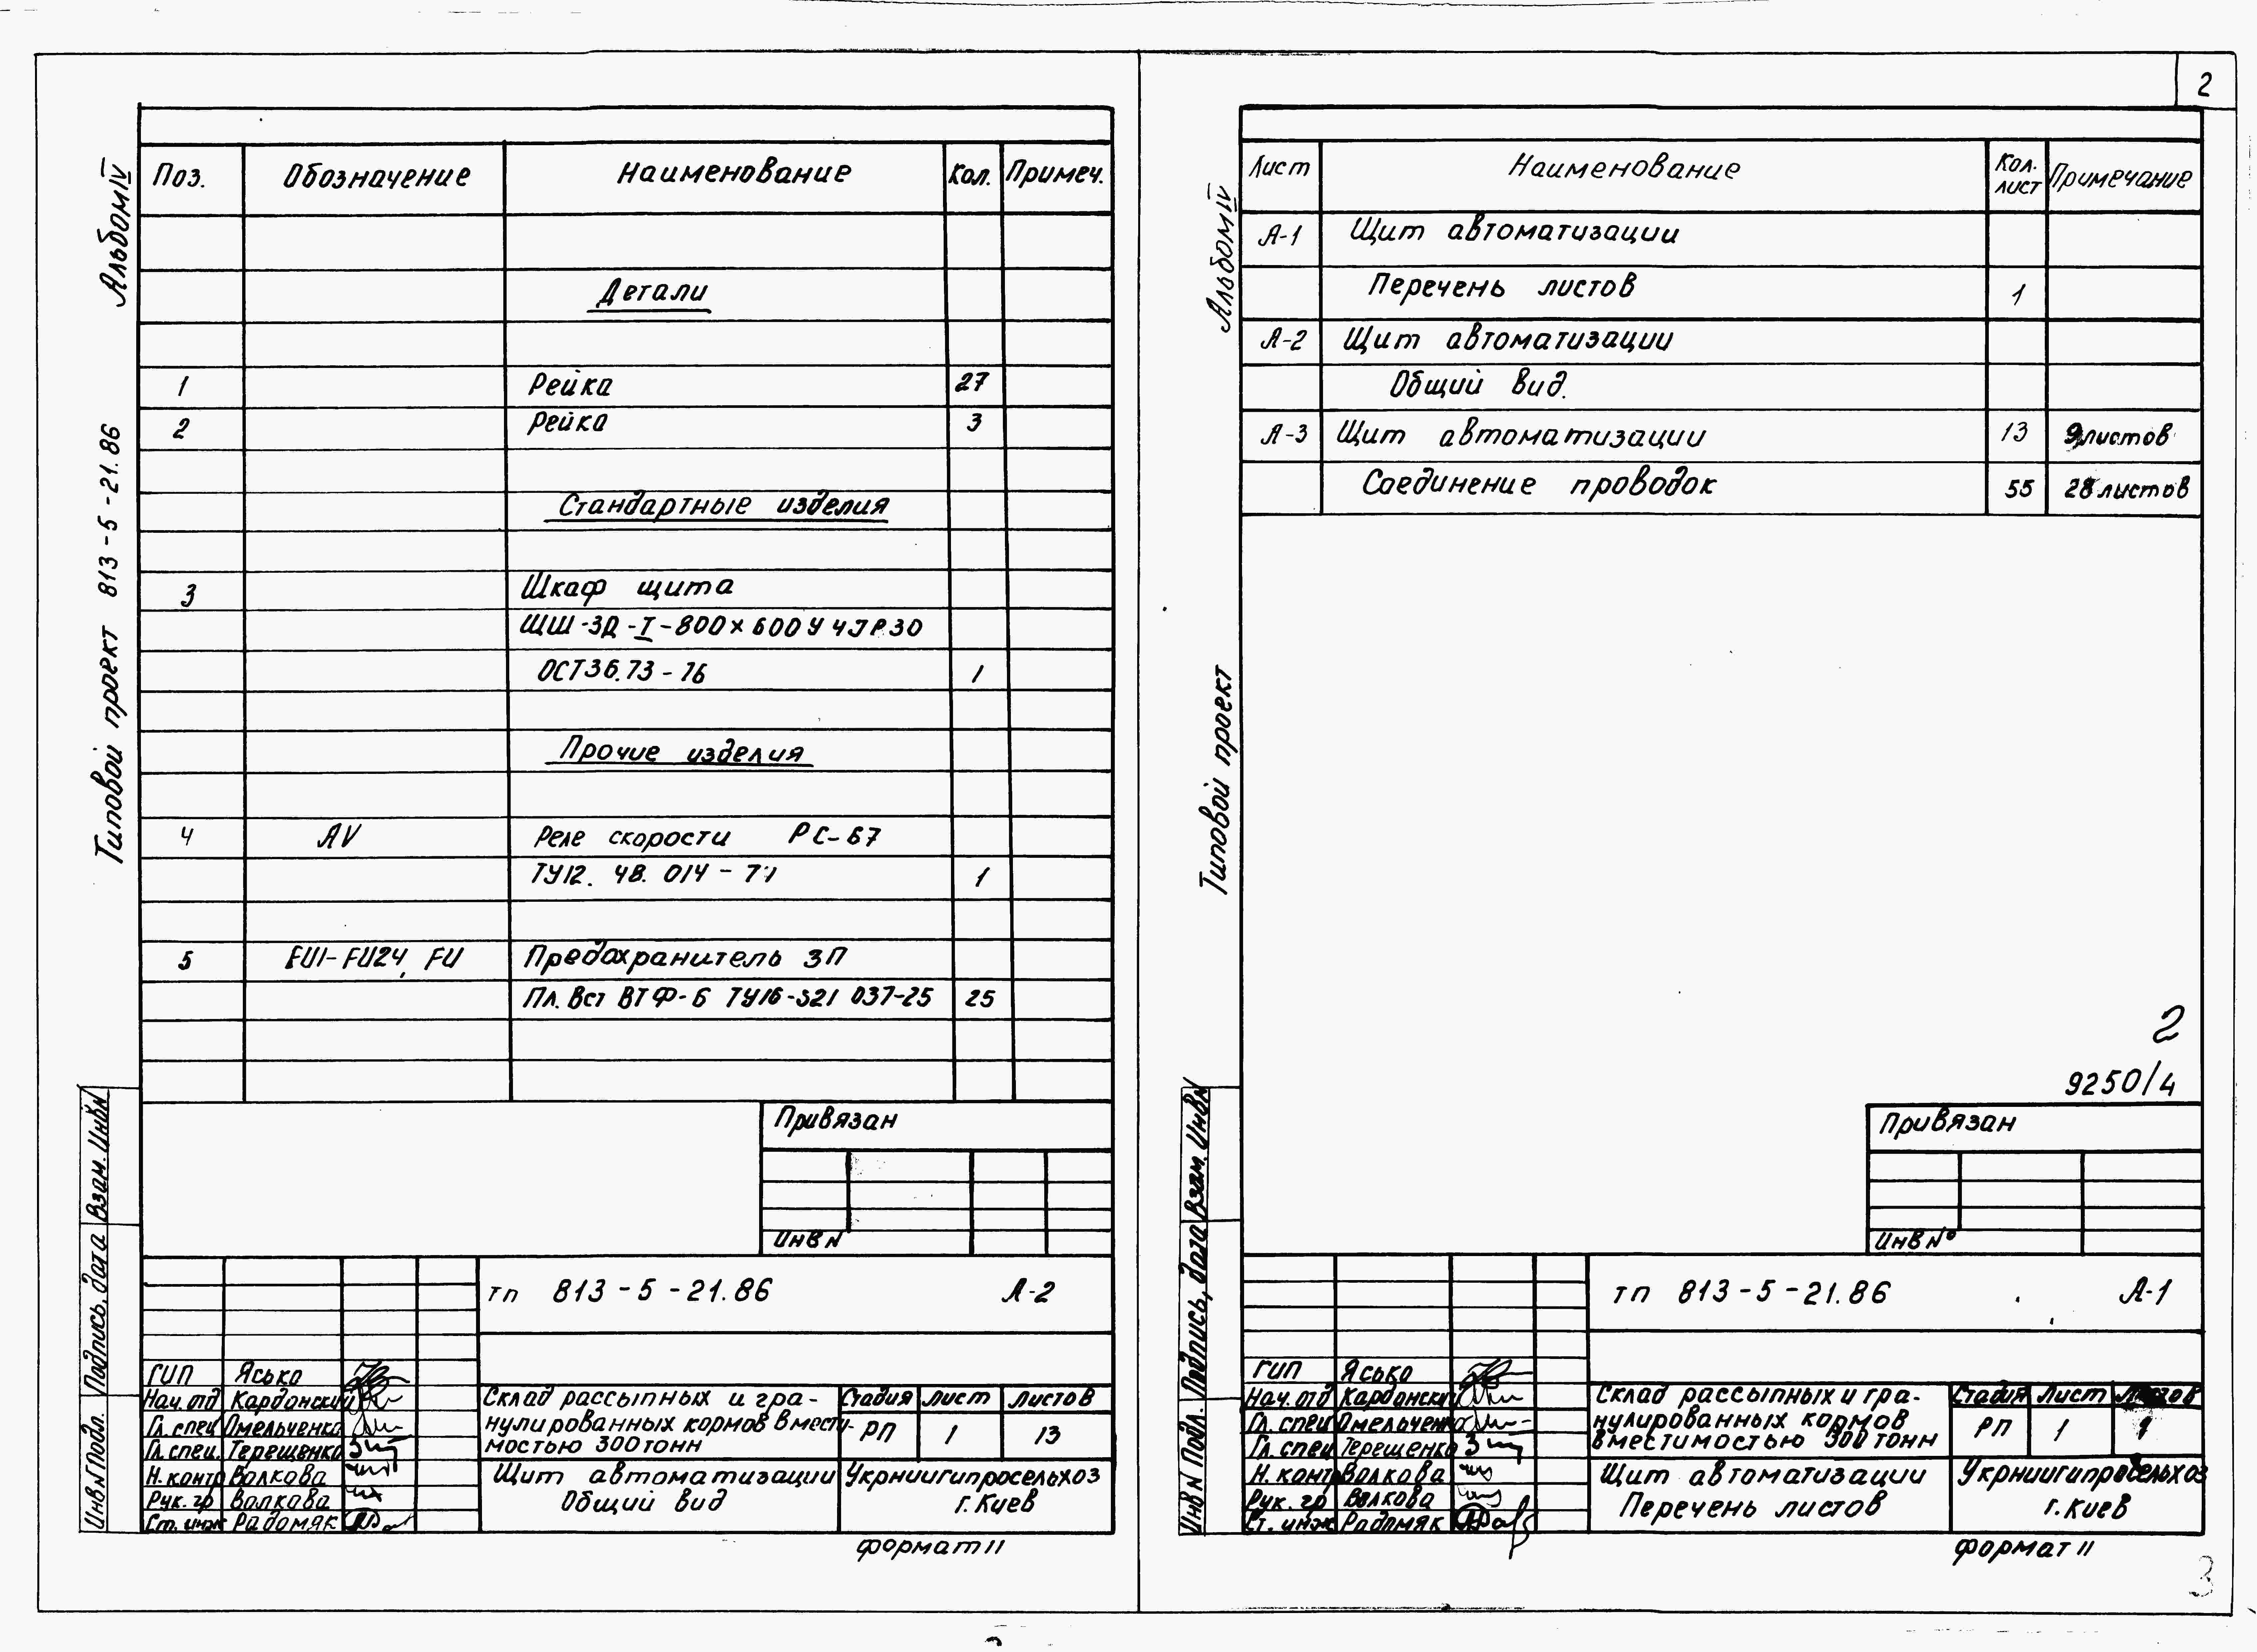 2
Альбом IV
Типовой проект 813-5-21.86
Поз. Обозначение Наименование Кол. Примеч.
Детали
1 Рейка 27
2 Рейка 3
Стандартные изделия
3 Шкаф щита
ЩШ-ЗД-I-800х600У4JP30
ОСТ36.73-76 1
Прочие изделия
4 AV Реле скорости РС-67
ТУ12. 48. 014-71 1
5 FU1-FU24, FU Предохранитель ЗП
Пл. Вст ВТФ-6 ТУ16-521 037-25 25
Привязан
Инв N
Инв N подл. Подпись, дата Взам. Инв N
тп 813-5-21.86 А-2
ГИП Ясько
Нач. отд Карданский
Гл. спец Омельченко
Гл. спец. Терещенко
Н. контр Волкова
Рук. гр Волкова
Ст. инж Радомяк
Склад рассыпных и гра-
нулированных кормов вмести-
мостью 300 тонн
Стадия Лист Листов
РП 1 13
Щит автоматизации
Общий вид
Укрниигипросельхоз
г. Киев
формат 11
Альбом IV
Типовой проект
Лист Наименование Кол. лист Примечание
А-1 Щит автоматизации
Перечень листов 1
А-2 Щит автоматизации
Общий вид.
А-3 Щит автоматизации 13 9 листов
Соединение проводок 55 28 листов
2
9250/4
Привязан
Инв N°
Инв N Подл. Подпись, дата Взам. Инв N
тп 813-5-21.86 А-1
ГИП Ясько
Нач. отд Карданский
Гл. спец Омельченко
Гл. спец Терещенко
Н. контр Волкова
Рук. гр Волкова
Ст. инж Радомяк
Склад рассыпных и гра-
нулированных кормов
вместимостью 300 тонн
Стадия Лист Листов
РП 1 1
Щит автоматизации
Перечень листов
Укрниигипросельхоз
г. Киев
формат 11
3